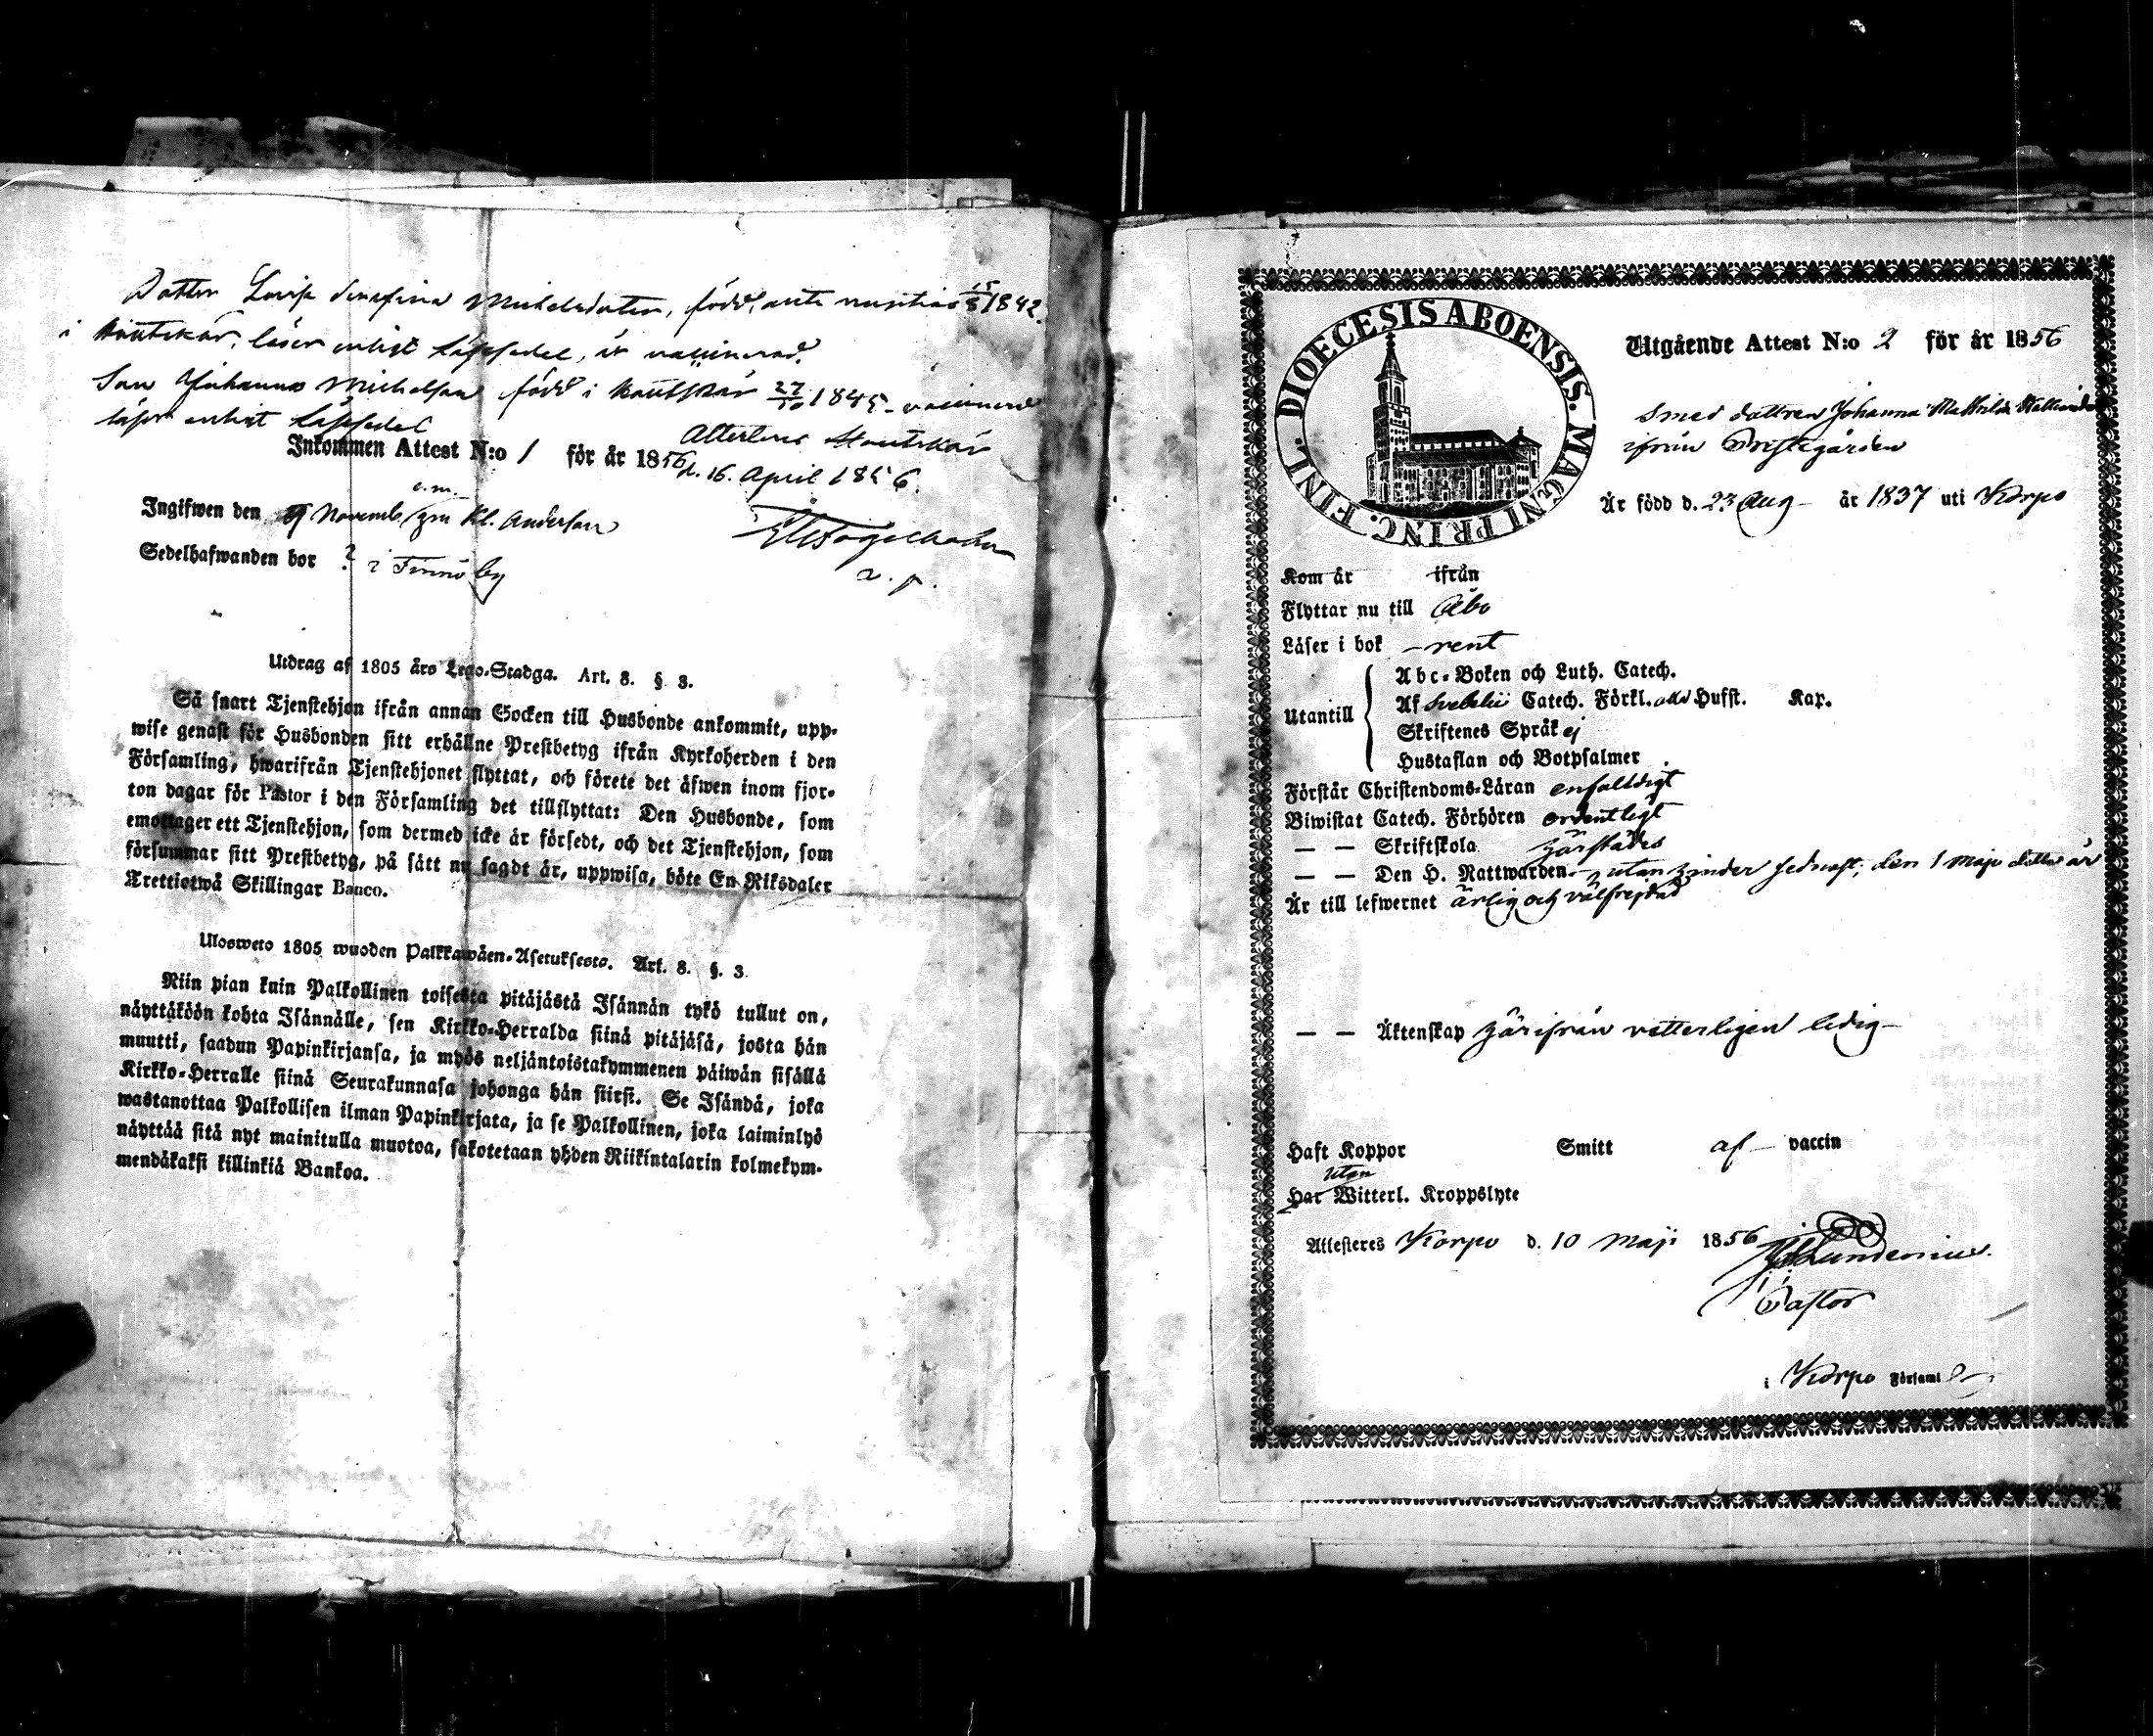 Dotter Lovisa Josefina Michelsdotter, född ante nuptias 15/8 1842.
i Houtskär, läser enligt läsesedel, är vaccinerad.
Son Johannes Michelsson född i Houtskär 27/10 1845 - vaccinerad
läser enligt läsesedel
Attesteras Houtskär
d. 16. April 1856.
a. p.
Inkommen Attest N:o 1 för år 1856
e.m.
Ingifwen den 9 Novemb. Kl. Andersson
Sedelhafwanden bor ? i Finnö by
Utdrag af 1805 års Lego-Stadga. Art. 8. §. 3.
Så snart Tjenstehjon ifrån annan Socken till Husbonde ankommit, upp-
wise genast för Husbonden sitt erhållne Prestbetyg ifrån Kyrkoherden i den
Församling, hwarifrån Tjenstehjonet flyttat, och förete det äfwen inom fjor-
ton dagar för Pastor i den Församling det tillflyttat: Den Husbonde, som
emottager ett Tjenstehjon, som dermed icke är försedt, och det Tjenstehjon, som
försummar sitt Prestbetyg, på sätt nu sagdt är, uppwisa, böte En Riksdaler
Trettiotwå Skillingar Banco.
Ulosweto 1805 wuoden Palkkawäen-Asetuksesta. Art. 8. §. 3
Niin pian kuin Palkollinen toisesta pitäjästä Isännän tykö tullut on,
näyttäköön kohta Isännälle, sen Kirkko-Herralda siinä pitäjäsä, josta hän
muutti, saadun Papinkirjansa, ja myös neljäntoistakymmenen päiwän sisällä
Kirkko-Herralle siinä Seurakunnasa johonga hän siirsi. Se Isändä, joka
wastanottaa Palkollisen ilman Papinkirjata, ja se Palkollinen, joka laiminlyö
näyttää sitä nyt mainitulla muotoa, sakotetaan yhden Riikintalarin kolmekym-
mendäkaksi killinkiä Bankoa.
DIOECESIS ABOENSIS. MAGNI PRINC. FINL.
Utgående Attest N:o 2 för år 1856
Smed dottren Johanna Mathilda
ifrån Prestegården
Är född d. 23 Aug - år 1837 uti Korpo
Kom år ifrån
Flyttar nu till Åbo
Läser i bok - rent
Utantill
Abc-Boken och Luth. Catech.
Af Svebelii Catech. Förkl. alla Hufst. Kap.
Skriftenes Språk ej
Hustaflan och Botpsalmer
Förstår Christendoms-Läran enfaldigt
Biwistat Catech. Förhören ordentligt
— — Skriftskola härstädes
— — Den H. Nattwarden - utan hinder sednast, den 1 Maji detta år
Är till lefwernet ärlig och välfrejdad
— — Äktenskap härifrån vetterligen ledig -
Haft Koppor Smitt af - vaccin
utan
Har Witterl. Kroppslyte
Attesteres Korpo d. 10 Maji 1856
Lundenius.
Pastor
i Korpo Församl